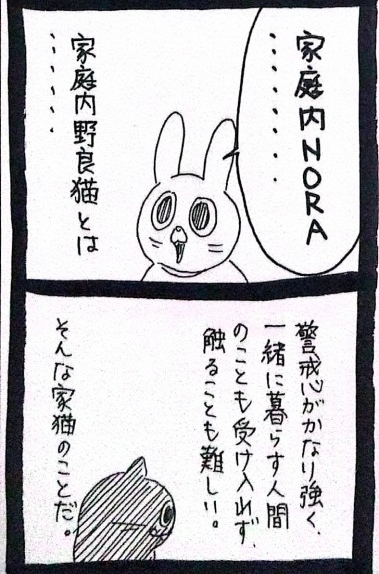 家庭内NORA
・・・・・・・・
家庭内野良猫とは
・・・・・・・
警戒心がかなり強く、
一緒に暮らす人間
のことも受け入れず、
触ることも難しい。
そんな家猫のことだ。